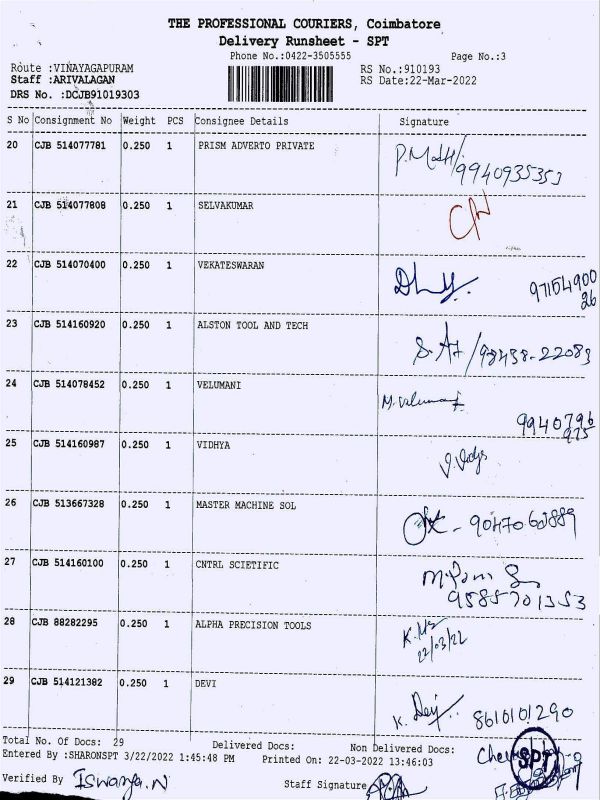 THE PROFESSIONAL COURIERS, Coimbatore
Delivery Runsheet - SPT
Phone No.:0422-3505555 Page No.:3
Route :VINAYAGAPURAM RS No.:910193
Staff :ARIVALAGAN RS Date:22-Mar-2022
DRS No. :DCJB91019303
S No Consignment No Weight PCS Consignee Details Signature
20 CJB 514077781 0.250 1 PRISM ADVERTO PRIVATE
9940935353
21 CJB 514077808 0.250 1 SELVAKUMAR
22 CJB 514070400 0.250 1 VEKATESWARAN
9715490026
23 CJB 514160920 0.250 1 ALSTON TOOL AND TECH
98438-22083
24 CJB 514078452 0.250 1 VELUMANI
M.Velumani
9940796
975
25 CJB 514160987 0.250 1 VIDHYA
26 CJB 513667328 0.250 1 MASTER MACHINE SOL
27 CJB 514160100 0.250 1 CNTRL SCIETIFIC
9585701353
28 CJB 88282295 0.250 1 ALPHA PRECISION TOOLS
22/03/22
29 CJB 514121382 0.250 1 DEVI
K. Devi 8610101290
Total No. Of Docs: 29 Delivered Docs: Non Delivered Docs:
Entered By :SHARONSPT 3/22/2022 1:45:48 PM Printed On: 22-03-2022 13:46:03
SPT
Verified By Iswarya.N Staff Signature